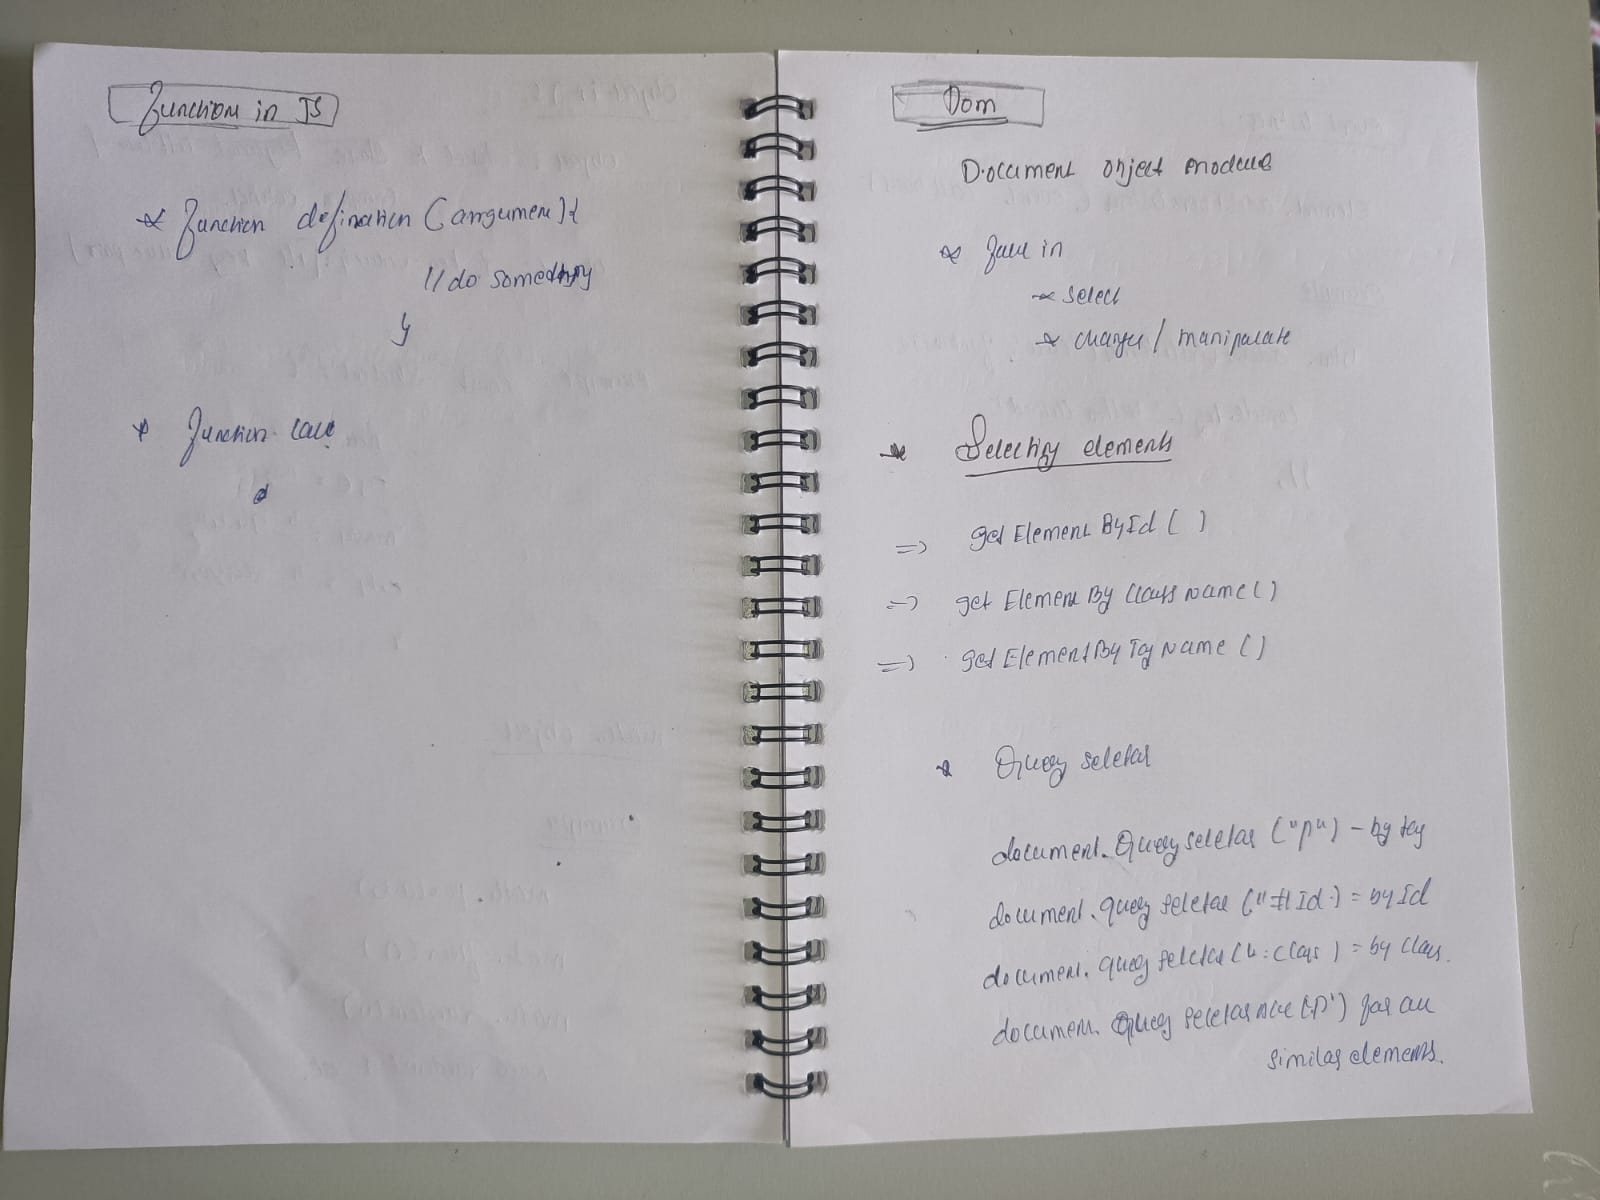 Function in JS
* Function defination (argument){
// do something
}
* Function call
Dom
Document object module
* Jaue in
* select
* changes / manipulate
* Selecting elements
=> get Element ById ( )
=> get Element By Class Name ( )
=> get Element By Tag Name ( )
* Query seletar
document. Query seletar ("p") - by tag
document. query seletar ("#Id.) = by Id
document. query seletar (". class ) = by class.
document. Query seletar all ('p') for all
similar elements.